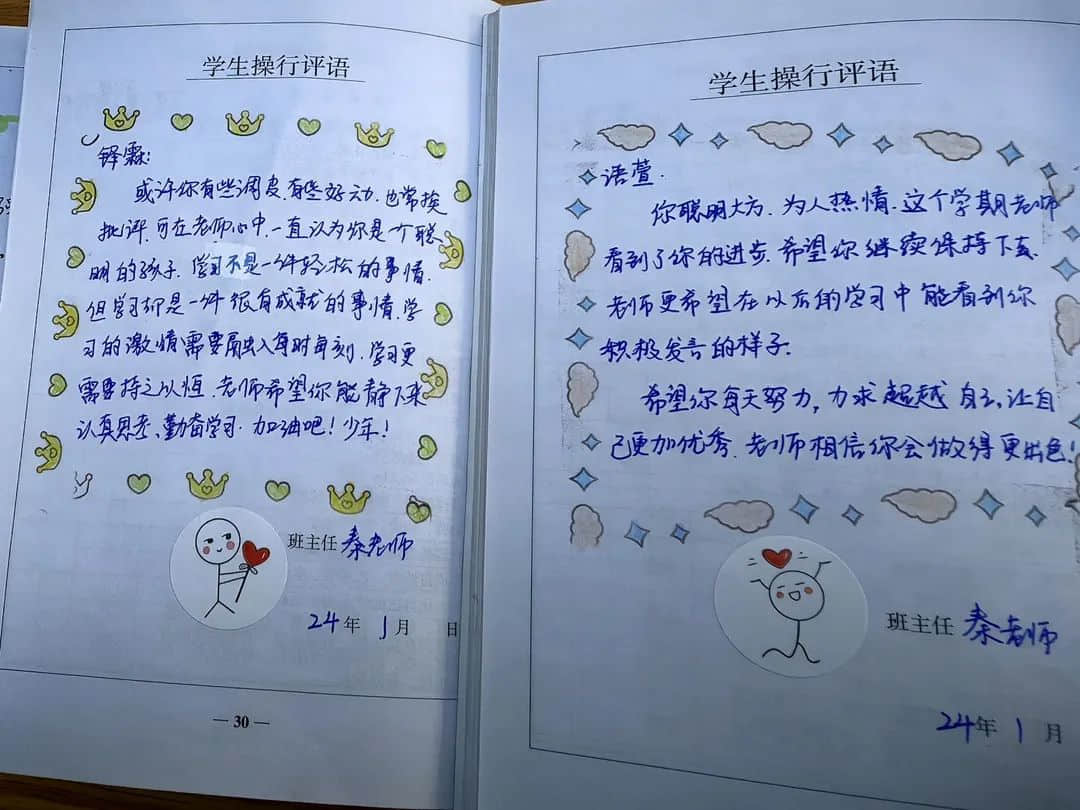 学生操行评语
铎霖:
或许你有些调皮,有些好动.也常挨
批评.可在老师心中.一直认为你是一个聪
明的孩子.学习不是一件轻松的事情.
但学习却是一件很有成就的事情.学
习的激情需要贯出入每时每刻.学习更
需要持之以恒.老师希望你能静下来
认真思考、勤奋学习.加油吧!少年!
班主任 秦老师
24年 1月 日
— 30 —
学生操行评语
语萱.
你聪明大方.为人热情.这个学期老师
看到了你的进步.希望你继续保持下去.
老师更希望在以后的学习中能看到你
积极发言的样子.
希望你每天努力,力求超越自己,让自
己更加优秀.老师相信你会做得更出色!
班主任 秦老师
24年 1 月